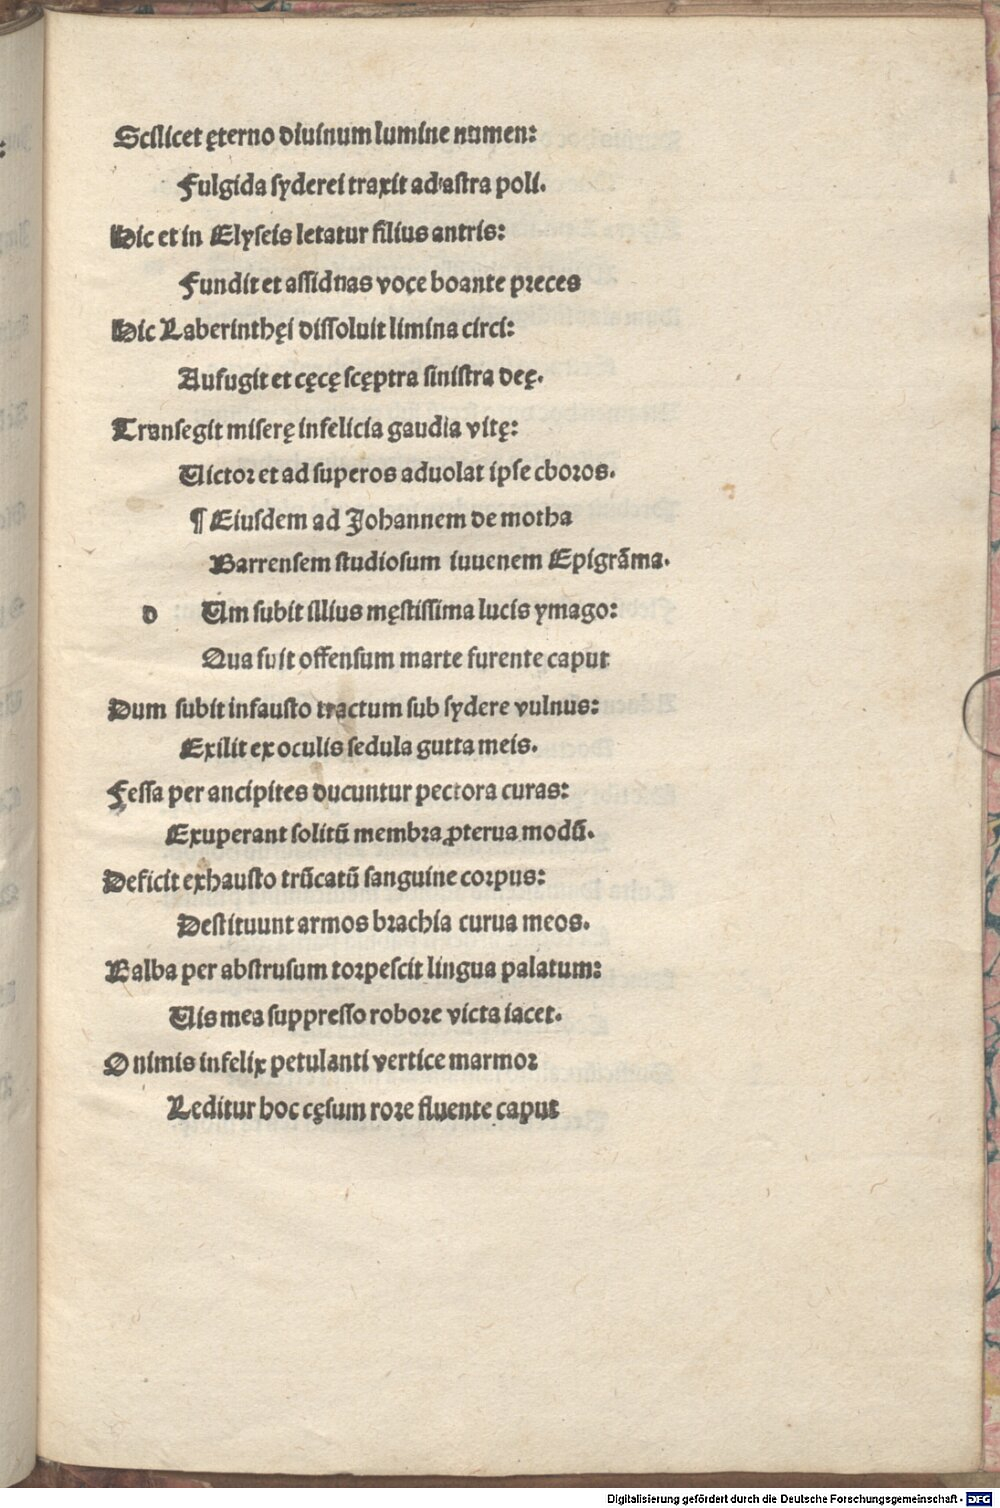 Scilicet ęterno diuinum lumine numen:
Fulgida syderei traxit ad astra poli.
Hic et in Elyseis letatur filius antris:
Fundit et assiduas voce boante preces
Hic Laberinthęi dissoluit limina circi:
Aufugit et cęcę scęptra sinistra deę.
Transegit miserę infelicia gaudia vitę:
Uictor et ad superos aduolat ipse choros.
¶ Eiusdem ad Johannem de motha
Barrensem studiosum iuuenem Epigrāma.
d Um subit illius męstissima lucis ymago:
Qua fuit offensum marte furente caput
Dum subit infausto tractum sub sydere vulnus:
Exilit ex oculis sedula gutta meis.
Fessa per ancipites ducuntur pectora curas:
Exuperant solitū membra ꝓterua modū.
Deficit exhausto trūcatū sanguine corpus:
Destituunt armos brachia curua meos.
Balba per abstrusum torpescit lingua palatum:
Uis mea suppresso robore victa iacet.
O nimis infelix petulanti vertice marmor
Leditur hoc cęsum rore fluente caput
Digitalisierung gefördert durch die Deutsche Forschungsgemeinschaft - DFG